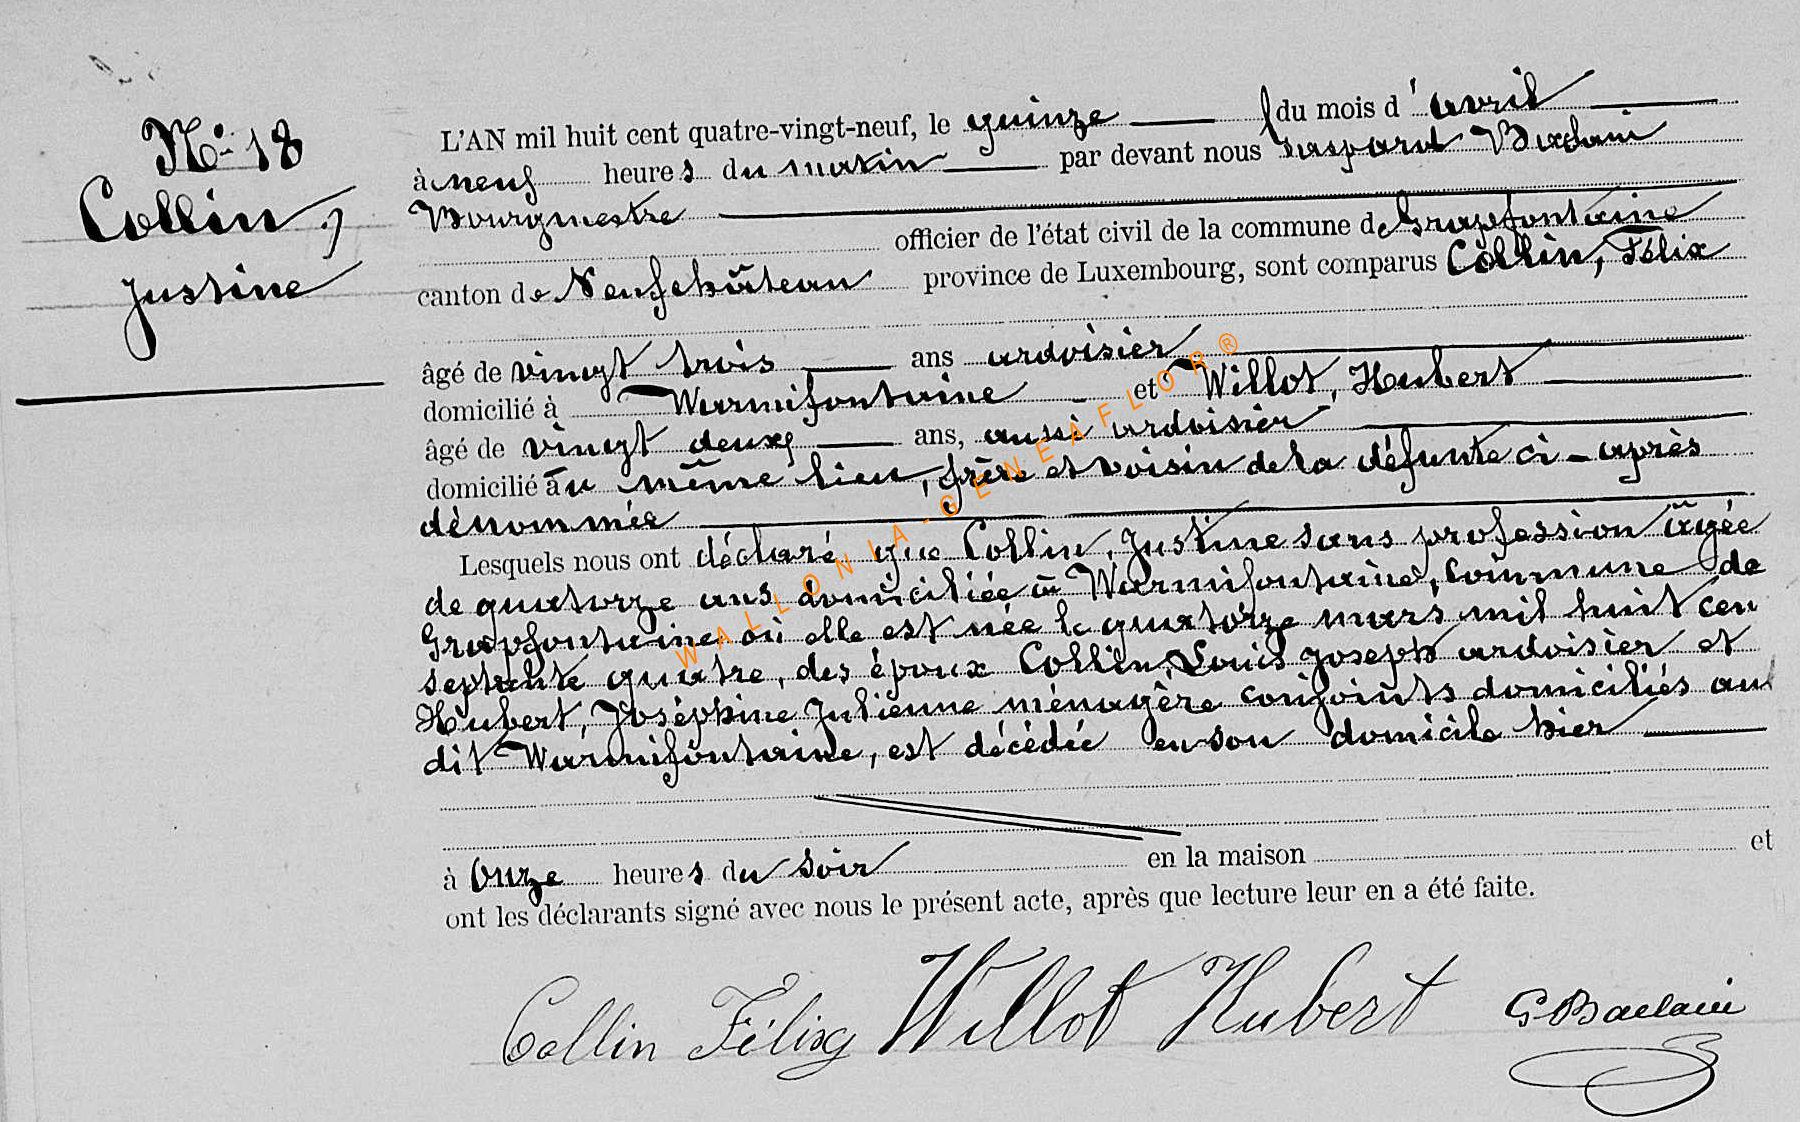 No 18
Collin,
Justine
L'AN mil huit cent quatre-vingt-neuf, le quinze du mois d'avril
à neuf heures du matin par devant nous Gaspard
Bourgmestre
officier de l'état civil de la commune de Grapfontaine
canton de Neufchâteau province de Luxembourg, sont comparus Collin, Félix
âgé de vingt trois ans ardoisier
domicilié à Warmifontaine et Willot, Hubert
âgé de vingt deux ans, aussi ardoisier
domicilié au même lieu, frère et voisin de la défunte ci-après
dénommée
Lesquels nous ont déclaré que Collin, Justine sans profession âgée
de quatorze ans domiciliée à Warmifontaine, commune de
Grapfontaine où elle est née le quatorze mars mil huit cen
septante quatre, des époux Collin, Louis Joseph ardoisier et
Hubert, Joséphine Julienne ménagère conjoints domiciliés au
dit Warmifontaine, est décédée en son domicile hier
à onze heures du soir en la maison et
ont les déclarants signé avec nous le présent acte, après que lecture leur en a été faite.
Collin Félix Willot Hubert
WALLONIA-GENEAFLOR®